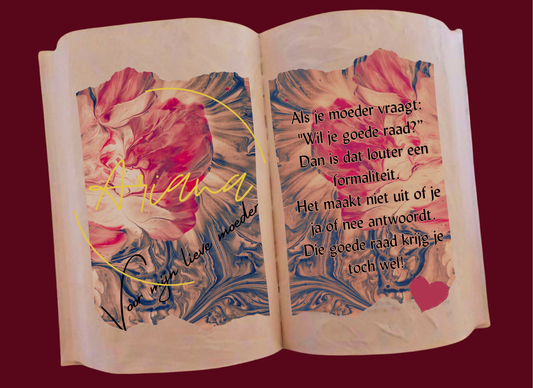 Ariana
Voor mijn lieve moeder
Als je moeder vraagt:
"Wil je goede raad?"
Dan is dat louter een
formaliteit.
Het maakt niet uit of je
ja of nee antwoordt.
Die goede raad krijg je
toch wel!